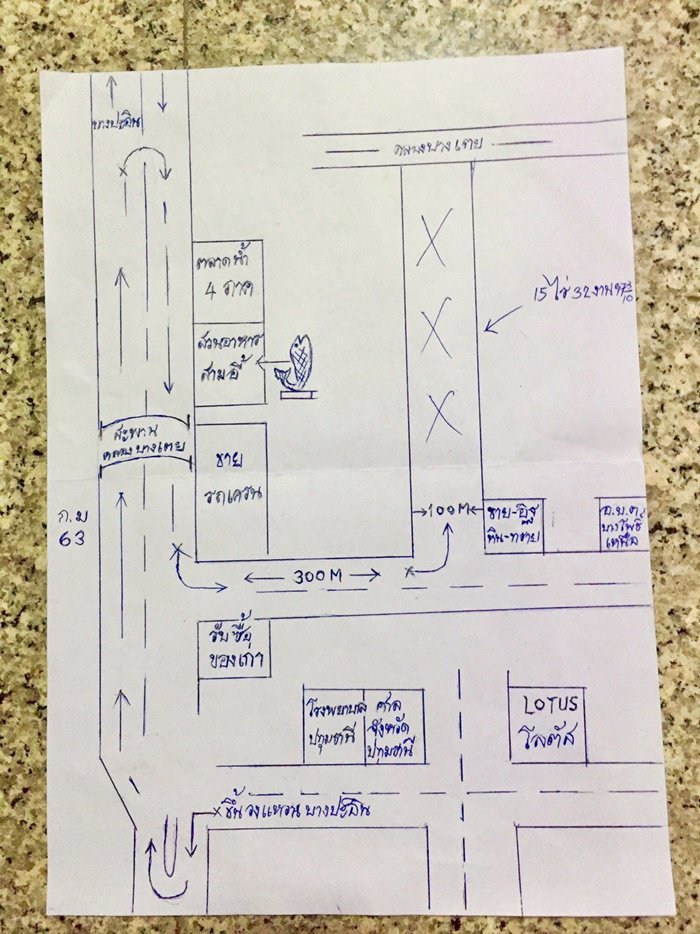 บางปะอิน
คลองบางเตย
ตลาดน้ำ
4 ภาค
15 ไร่ 32งาน
สวนอาหาร
สามอี้
สะพาน
คลองบางเตย
ขาย
รถเครน
ก.ม
63
100M
ขาย-อิฐ
หิน-ทราย
อ.บ.ต
บางโพธิ์
เหนือ
300M
รับซื้อ
ของเก่า
โรงพยาบาล
ปทุมธานี
ศาล
จังหวัด
ปทุมธานี
LOTUS
โลตัส
ขึ้นวงแหวนบางปะอิน